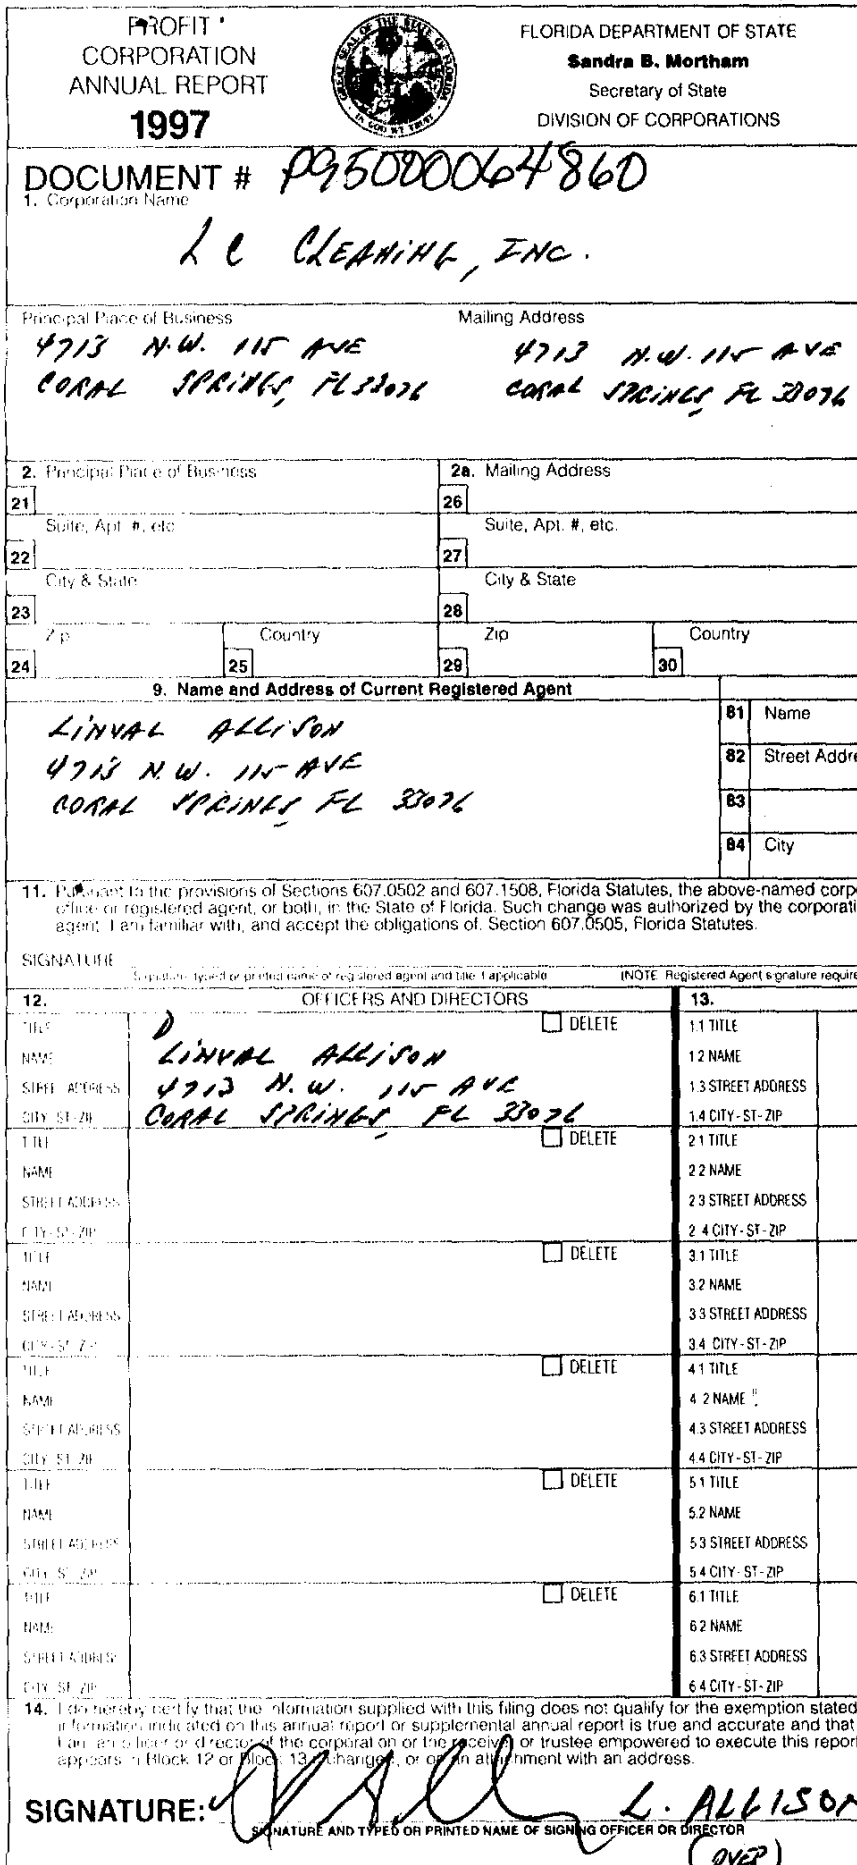 PROFIT
CORPORATION
ANNUAL REPORT
1997
FLORIDA DEPARTMENT OF STATE
Sandra B. Mortham
Secretary of State
DIVISION OF CORPORATIONS
DOCUMENT # P95000064860
1. Corporation Name
L C CLEANING, INC.
Principal Place of Business
Mailing Address
4713 N.W. 115 AVE
CORAL SPRINGS, FL 33076
4713 N.W. 115 AVE
CORAL SPRINGS, FL 33076
2. Principal Place of Business
2a. Mailing Address
21
26
Suite, Apt. #, etc.
Suite, Apt. #, etc.
22
27
City & State
City & State
23
28
Zip
Country
Zip
Country
24
25
29
30
9. Name and Address of Current Registered Agent
LINVAL ALLISON
4713 N.W. 115 AVE
CORAL SPRINGS, FL 33076
81 Name
82 Street Addre
83
84 City
11. Pursuant to the provisions of Sections 607.0502 and 607.1508, Florida Statutes, the above-named corp
office or registered agent, or both, in the State of Florida. Such change was authorized by the corporati
agent. I am familiar with, and accept the obligations of, Section 607.0505, Florida Statutes.
SIGNATURE
Signature, typed or printed name of registered agent and title if applicable
(NOTE: Registered Agent signature require
12. OFFICERS AND DIRECTORS
13.
TITLE D DELETE
NAME LINVAL ALLISON
STREET ADDRESS 4713 N.W. 115 AVE
CITY-ST-ZIP CORAL SPRINGS, FL 33076
1.1 TITLE
1.2 NAME
1.3 STREET ADDRESS
1.4 CITY-ST-ZIP
TITLE DELETE
NAME
STREET ADDRESS
CITY-ST-ZIP
2.1 TITLE
2.2 NAME
2.3 STREET ADDRESS
2.4 CITY-ST-ZIP
TITLE DELETE
NAME
STREET ADDRESS
CITY-ST-ZIP
3.1 TITLE
3.2 NAME
3.3 STREET ADDRESS
3.4 CITY-ST-ZIP
TITLE DELETE
NAME
STREET ADDRESS
CITY-ST-ZIP
4.1 TITLE
4.2 NAME
4.3 STREET ADDRESS
4.4 CITY-ST-ZIP
TITLE DELETE
NAME
STREET ADDRESS
CITY-ST-ZIP
5.1 TITLE
5.2 NAME
5.3 STREET ADDRESS
5.4 CITY-ST-ZIP
TITLE DELETE
NAME
STREET ADDRESS
CITY-ST-ZIP
6.1 TITLE
6.2 NAME
6.3 STREET ADDRESS
6.4 CITY-ST-ZIP
14. I do hereby certify that the information supplied with this filing does not qualify for the exemption stated
information indicated on this annual report or supplemental annual report is true and accurate and that
I am an officer or director of the corporation or the receiver or trustee empowered to execute this report
appears in Block 12 or Block 13 if changed, or on an attachment with an address.
SIGNATURE: L. ALLISON
SIGNATURE AND TYPED OR PRINTED NAME OF SIGNING OFFICER OR DIRECTOR
(OVER)